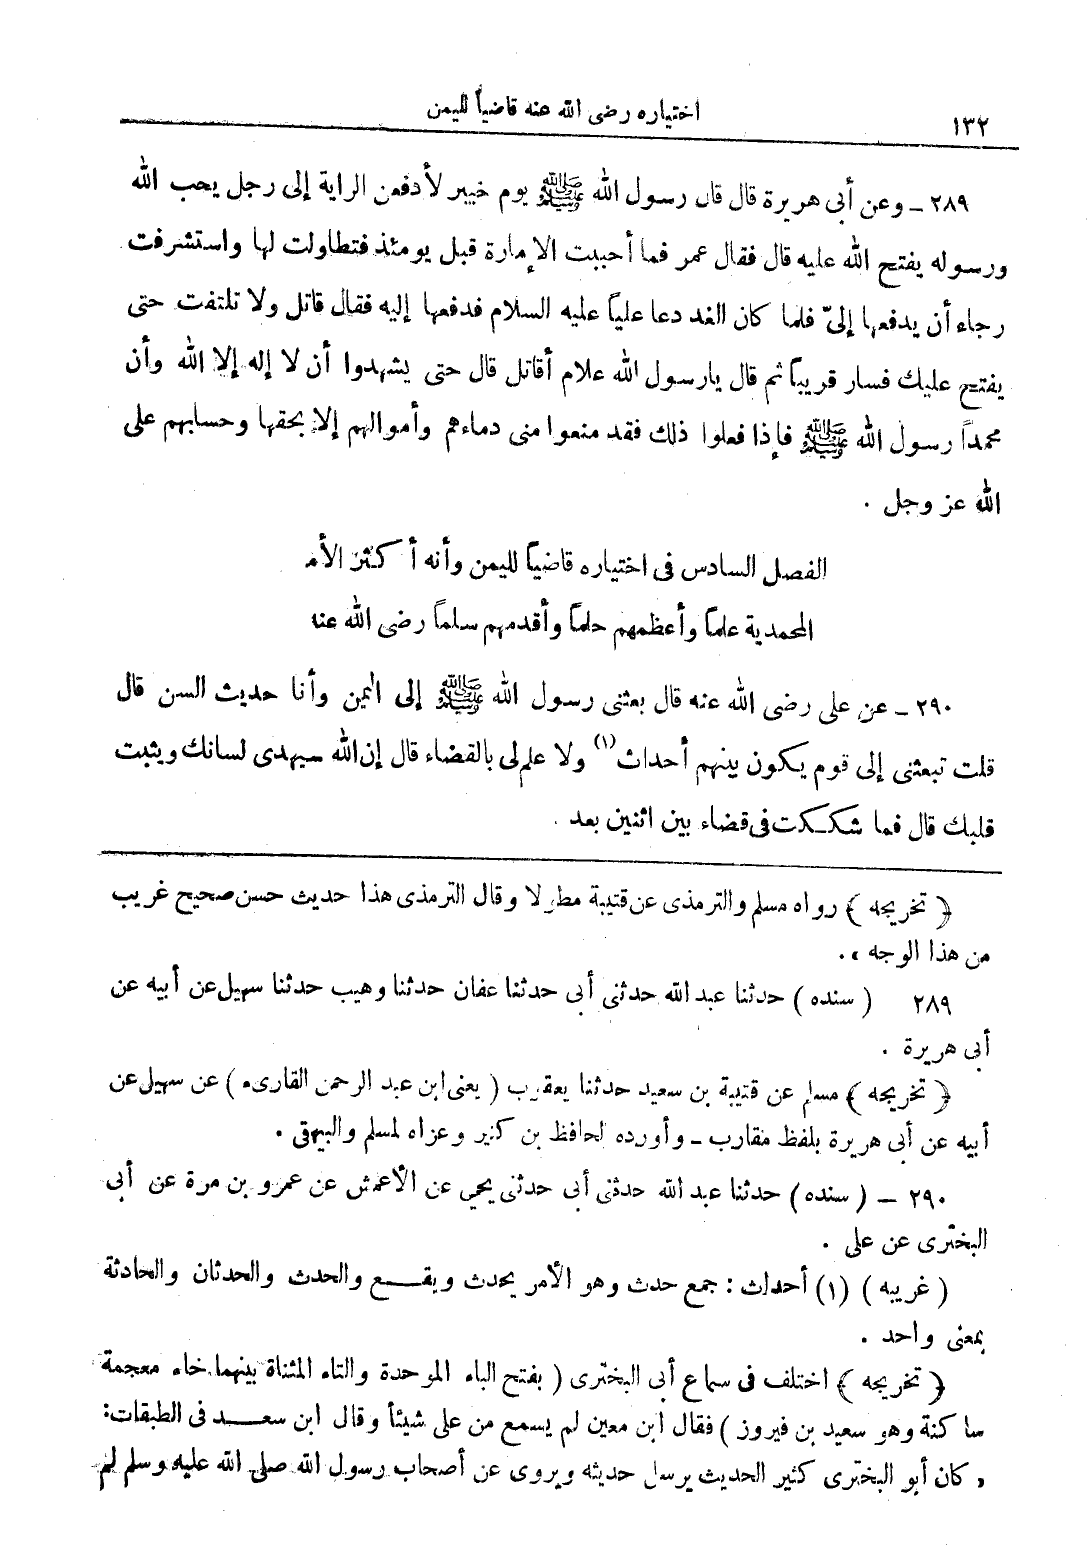 اختياره رضى الله عنه قاضياً لليمن
١٣٢
٢٨٩ ـ وعن أبى هريرة قال قال رسول الله ﷺ يوم خيبر لأدفعن الراية إلى رجل يحب الله
ورسوله يفتح الله عليه قال فقال عمر فما أحببت الإمارة قبل يومئذ فتطاولت لها واستشرفت
رجاء أن يدفعها إلىّ فلما كان الغد دعا علياً عليه السلام فدفعها إليه فقال قاتل ولا تلتفت حتى
يفتح عليك فسار قريباً ثم قال يارسول الله علام أقاتل قال حتى يشهدوا أن لا إله إلا الله وأن
محمداً رسول الله ﷺ فإذا فعلوا ذلك فقد منعوا منى دماءهم وأموالهم إلا بحقها وحسابهم على
الله عز وجل .
الفصل السادس فى اختياره قاضياً لليمن وأنه أكثر الأمـ
المحمدية علماً وأعظمهم حلماً وأقدمهم سلماً رضى الله عنه
٢٩٠ ـ عن على رضى الله عنه قال بعثنى رسول الله ﷺ إلى اليمن وأنا حديث السن قال
قلت تبعثنى إلى قوم يكون بينهم أحداث (١) ولا علم لى بالقضاء قال إن الله سيهدى لسانك ويثبت
قلبك قال فما شككت فى قضاء بين اثنين بعد .
﴿ تخريجه ﴾ رواه مسلم والترمذى عن قتيبة مطولا وقال الترمذى هذا حديث حسن صحيح غريب
من هذا الوجه » .
٢٨٩ ( سنده ) حدثنا عبد الله حدثنى أبى حدثنا عفان حدثنا وهيب حدثنا سهيل عن أبيه عن
أبى هريرة .
﴿ تخريجه ﴾ مسلم عن قتيبة بن سعيد حدثنا يعقوب ( يعنى ابن عبد الرحمن القارىء ) عن سهيل عن
أبيه عن أبى هريرة بلفظ مقارب ـ وأورده الحافظ بن كثير وعزاه لمسلم والبيهقى .
٢٩٠ ـ ( سنده ) حدثنا عبد الله حدثنى أبى حدثنى يحيى عن الأعمش عن عمرو بن مرة عن أبى
البخترى عن على .
( غريبه ) (١) أحداث : جمع حدث وهو الأمر يحدث ويقـــع والحدث والحدثان والحادثة
بمعنى واحد .
﴿ تخريجه ﴾ اختلف فى سماع أبى البخترى ( بفتح الباء الموحدة والتاء المثناة بينهما خاء معجمة
ساكنة وهو سعيد بن فيروز ) فقال ابن معين لم يسمع من على شيئاً وقال ابن سعــد فى الطبقات :
« كان أبو البخترى كثير الحديث يرسل حديثه ويروى عن أصحاب رسول الله صلى الله عليه وسلم لم